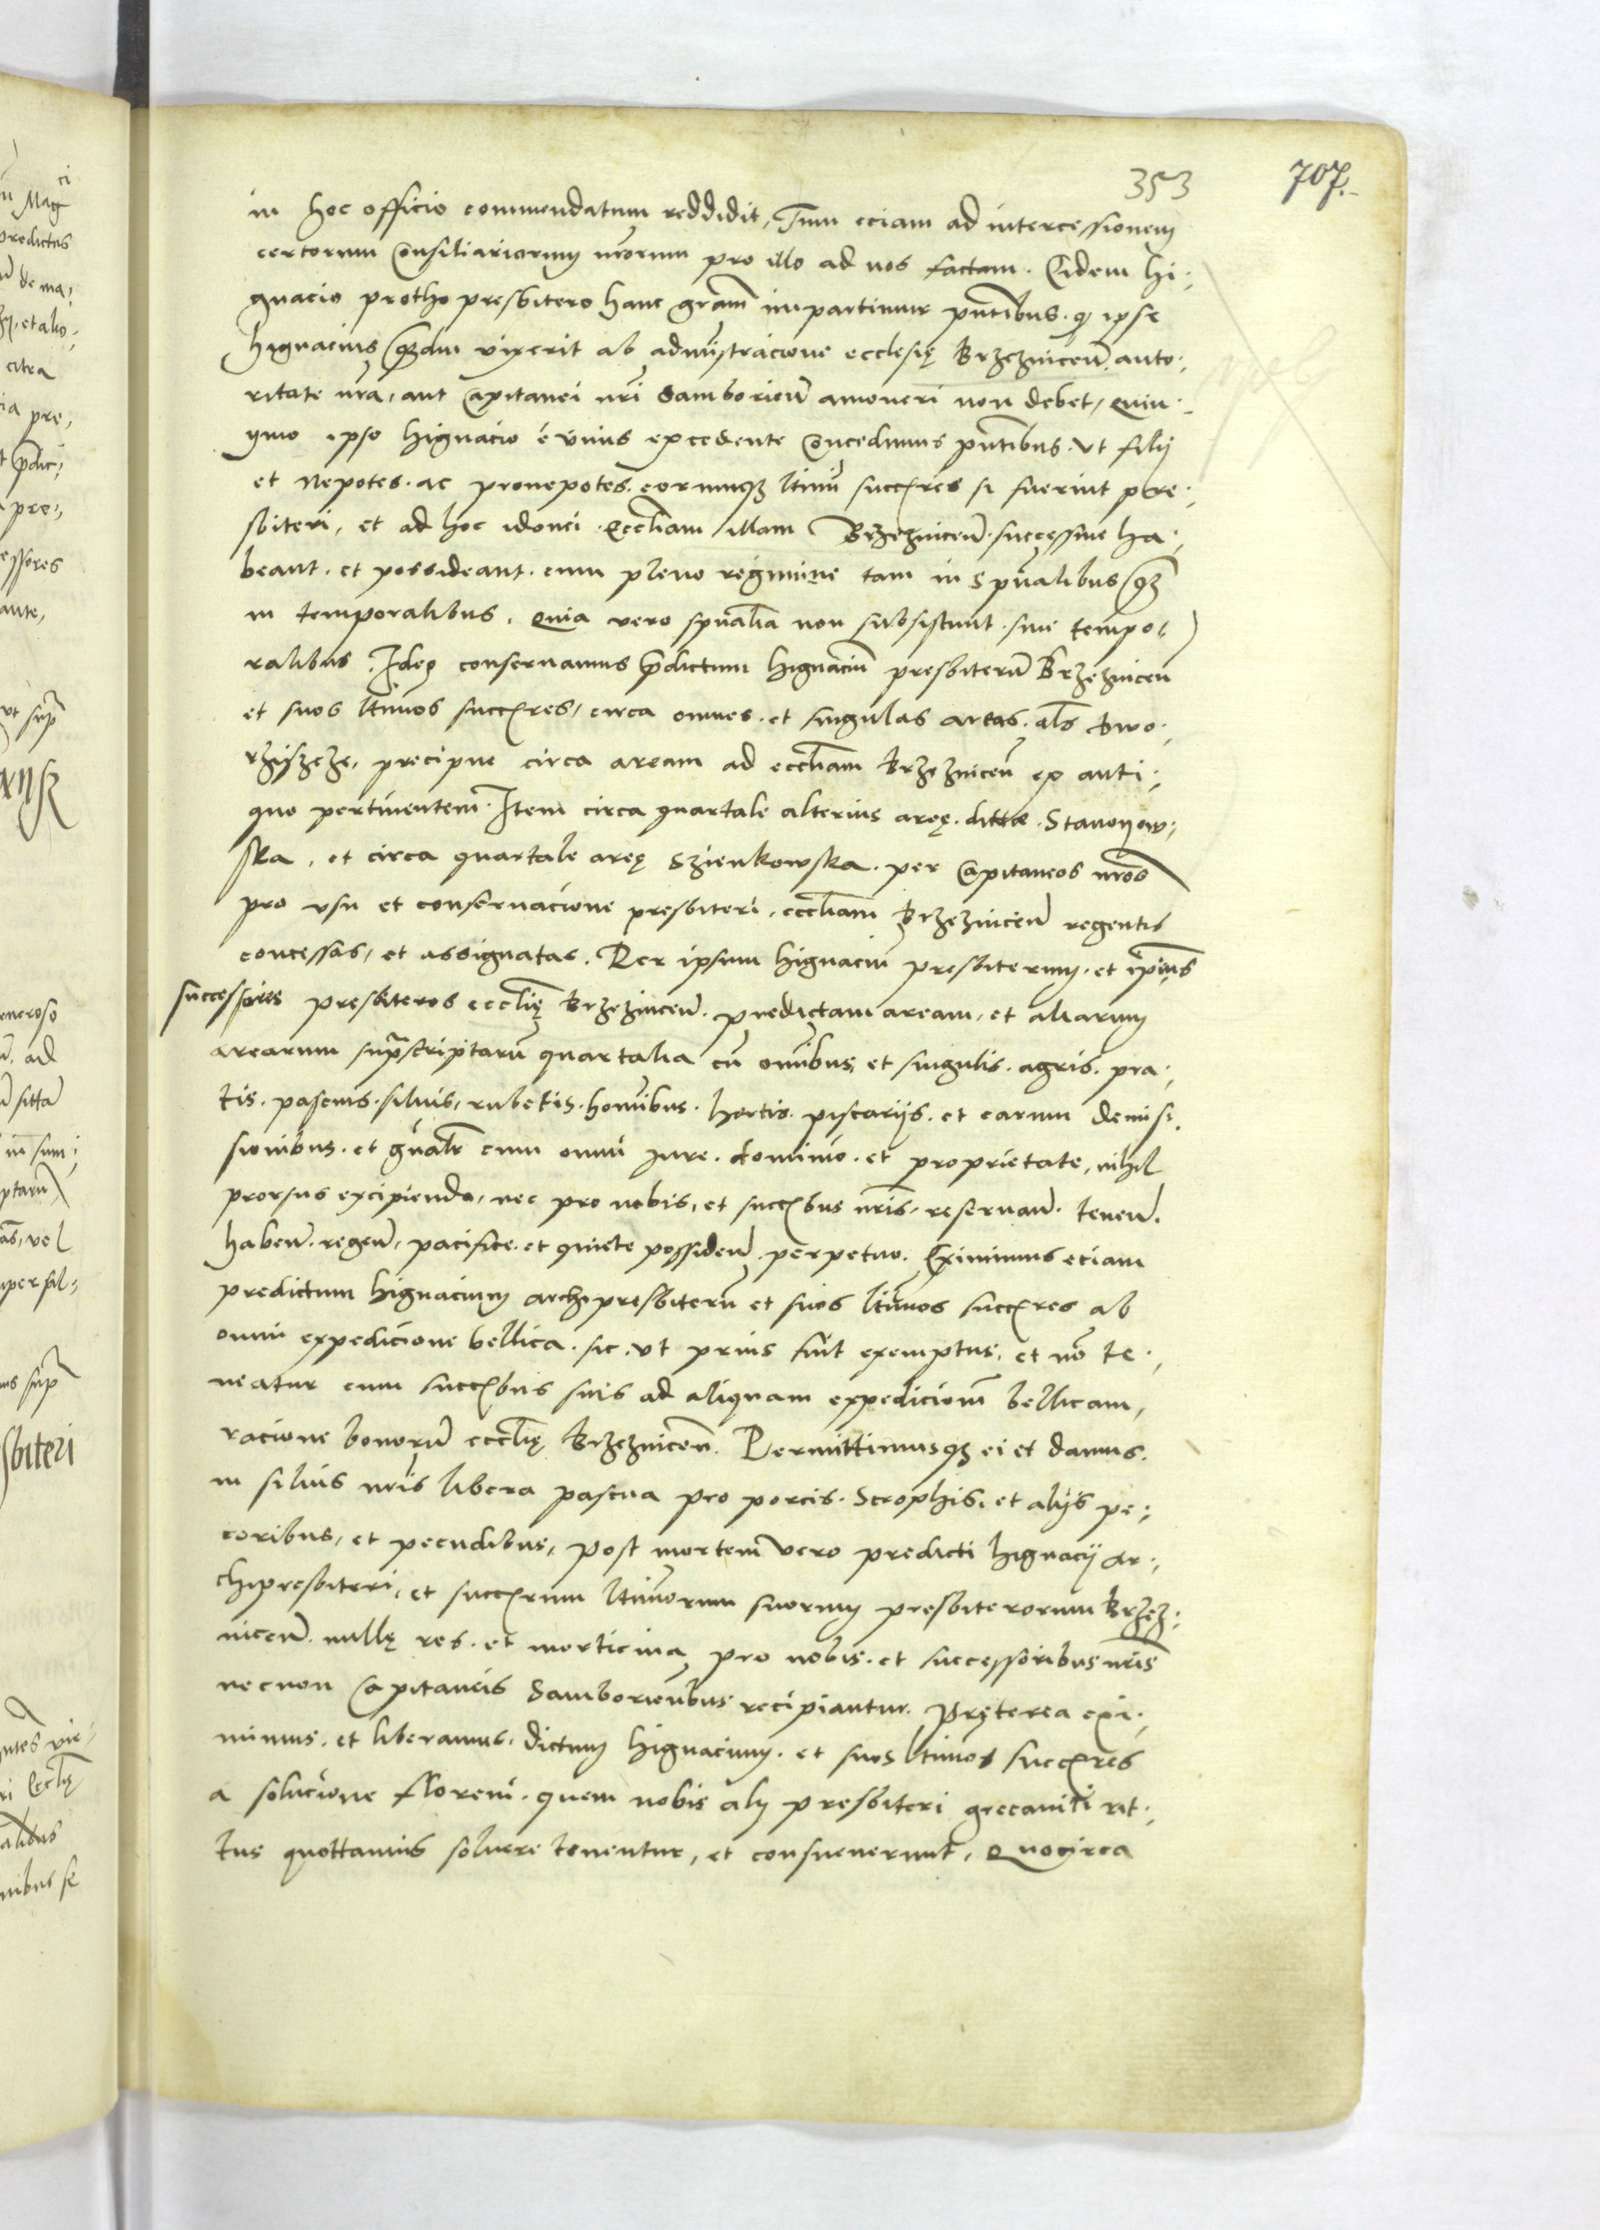 353 707.
in hoc officio commendatum reddidit, Tum eciam ad intercessionem
certorum Consiliariorum nrorum pro illo ad nos factam. Eidem hi,
gnacio prothopresbitero hanc gram impartimur pntibus. q ipse
hignacius quadm vixerit ab admistracione ecclesię Brzeznicen auto,
ritate nra, aut Capitanei nri Samborien amoveri non debet, Quin,
ymo ipso hignacio e vivis excedente Concedimus pntibus. Ut filij
et Nepotes. ac pronepotes. eorumqz ltimi succres si fuerint pre,
sbiteri, et ad hoc idonei. Eccliam illam Brzeznicen. successive ha,
beant. et possideant. cum pleno regimine tam in spualibus qz
in temporalibus. Quia vero spualia non subsistunt. sine tempo,
ralibus. Ideo conservamus pdictum hignaciu presbiteru Brzeznicen
et suos ltimos succres, circa omnes. et singulas areas. als dwo,
rzyszcze, precipue circa aream ad eccliam Brzeznicen ex anti,
quo pertinentem. Item circa quartale alterius areę. dittæ. Stanoyow,
ska, et circa quartale areę Szienkowska. per Capitaneos nros
pro usu et conservacione presbiteri, eccliam Brzeznicen regentis
concessas, et assignatas. Per ipsum hignaciu presbiterum. et ipsius
successores presbiteros ecclię Brzeznicen. predictam aream, et aliarum
arearum suprascriptaru quartalia cu omibus, et singulis. agris. pra,
tis. pascuis. silvis, rubetis. homibus. hortis. piscariis. et earum demis,
sionibus. et gnalr cum omni jure. dominio. et proprietate, nihil
prorsus excipiendo, nec pro nobis, et succbus nris. reservan. tenen.
haben. regen, pacifice. et quiete possiden. perpetuo. Eximimus eciam
predictum hignacium archipresbiteru et suos ltimos succres ab
omni expedicione bellica. sic, ut prius fuit exemptus, et no te,
neatur cum succbus suis ad aliquam expedicionem bellicam,
racione bonoru ecclię Brzeznicen. Permittimusqz ei et damus.
in silvis nris libera pascua pro porcis. Scrophis, et alijs pe,
coribus, et pecudibus, post mortem vero predicti hignacij ar,
chipresbiteri, et succrum ltimorum suorum presbiterorum Brzez,
nicen. nullę res. et morticina pro nobis. et successoribus nris
necnon Capitaneis Samborienbus recipiantur. Pręterea exi,
mimus. et liberamus. dictum hignacium. et suos ltimos succres
a solucione floreni. quem nobis alij presbiteri grecaniti rit,
tus quottannis solvere tenentur, et consueverunt. Quocirca